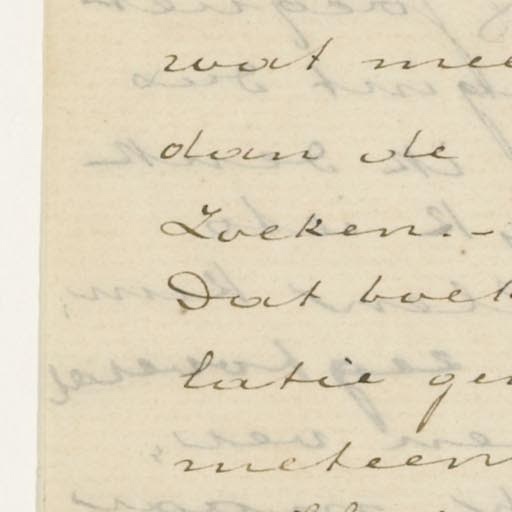 wat mee
dan de
Zoeken.-
Dat boek
latie ge
meteen